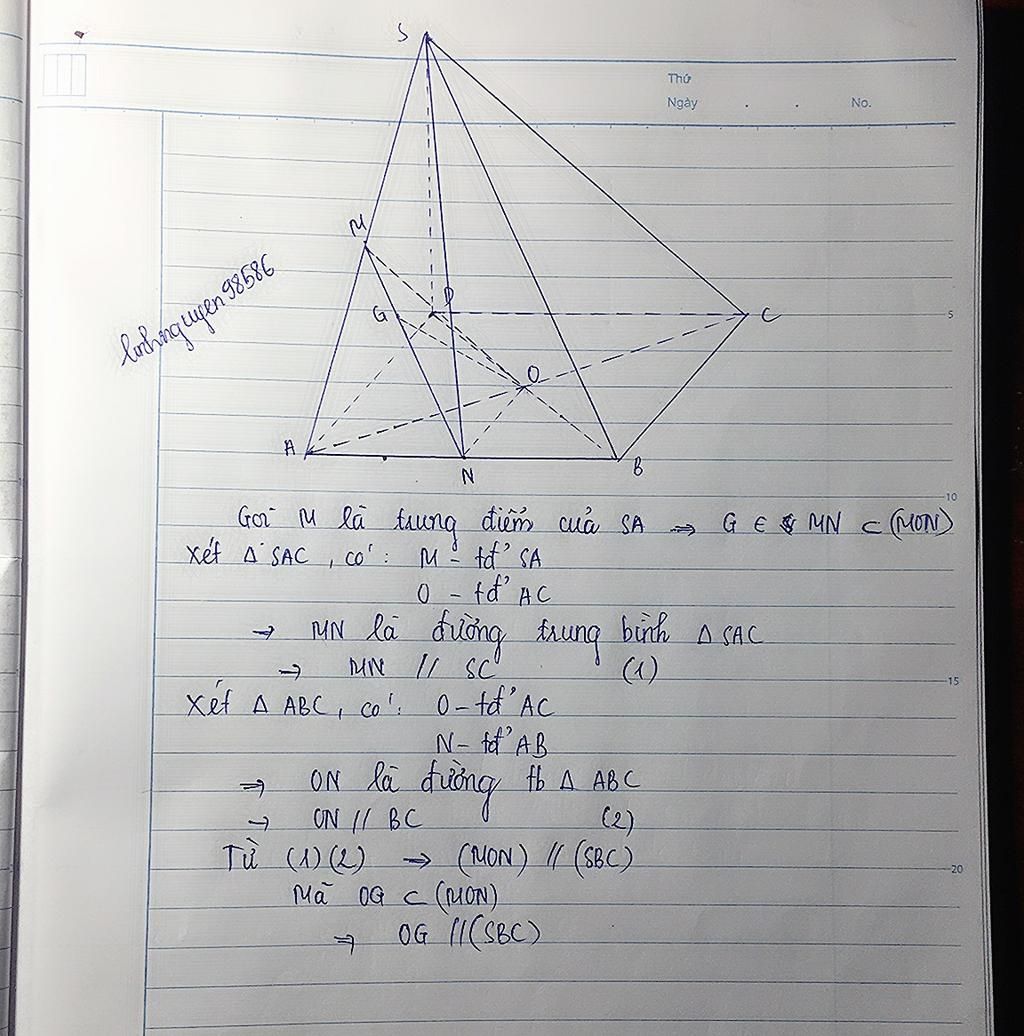 Thứ
Ngày . . No.
S
M
G
D
C
O
A
N
B
linhnguyen98586
5
10
15
20
Gọi M là trung điểm của SA ⇒ G ∈ MN ⊂ (MON)
Xét Δ SAC, có: M - tđ' SA
O - tđ' AC
→ MN là đường trung bình Δ SAC
→ MN // SC (1)
Xét Δ ABC, có: O - tđ' AC
N - tđ' AB
⇒ ON là đường tb Δ ABC
→ ON // BC (2)
Từ (1)(2) → (MON) // (SBC)
Mà OG ⊂ (MON)
⇒ OG // (SBC)